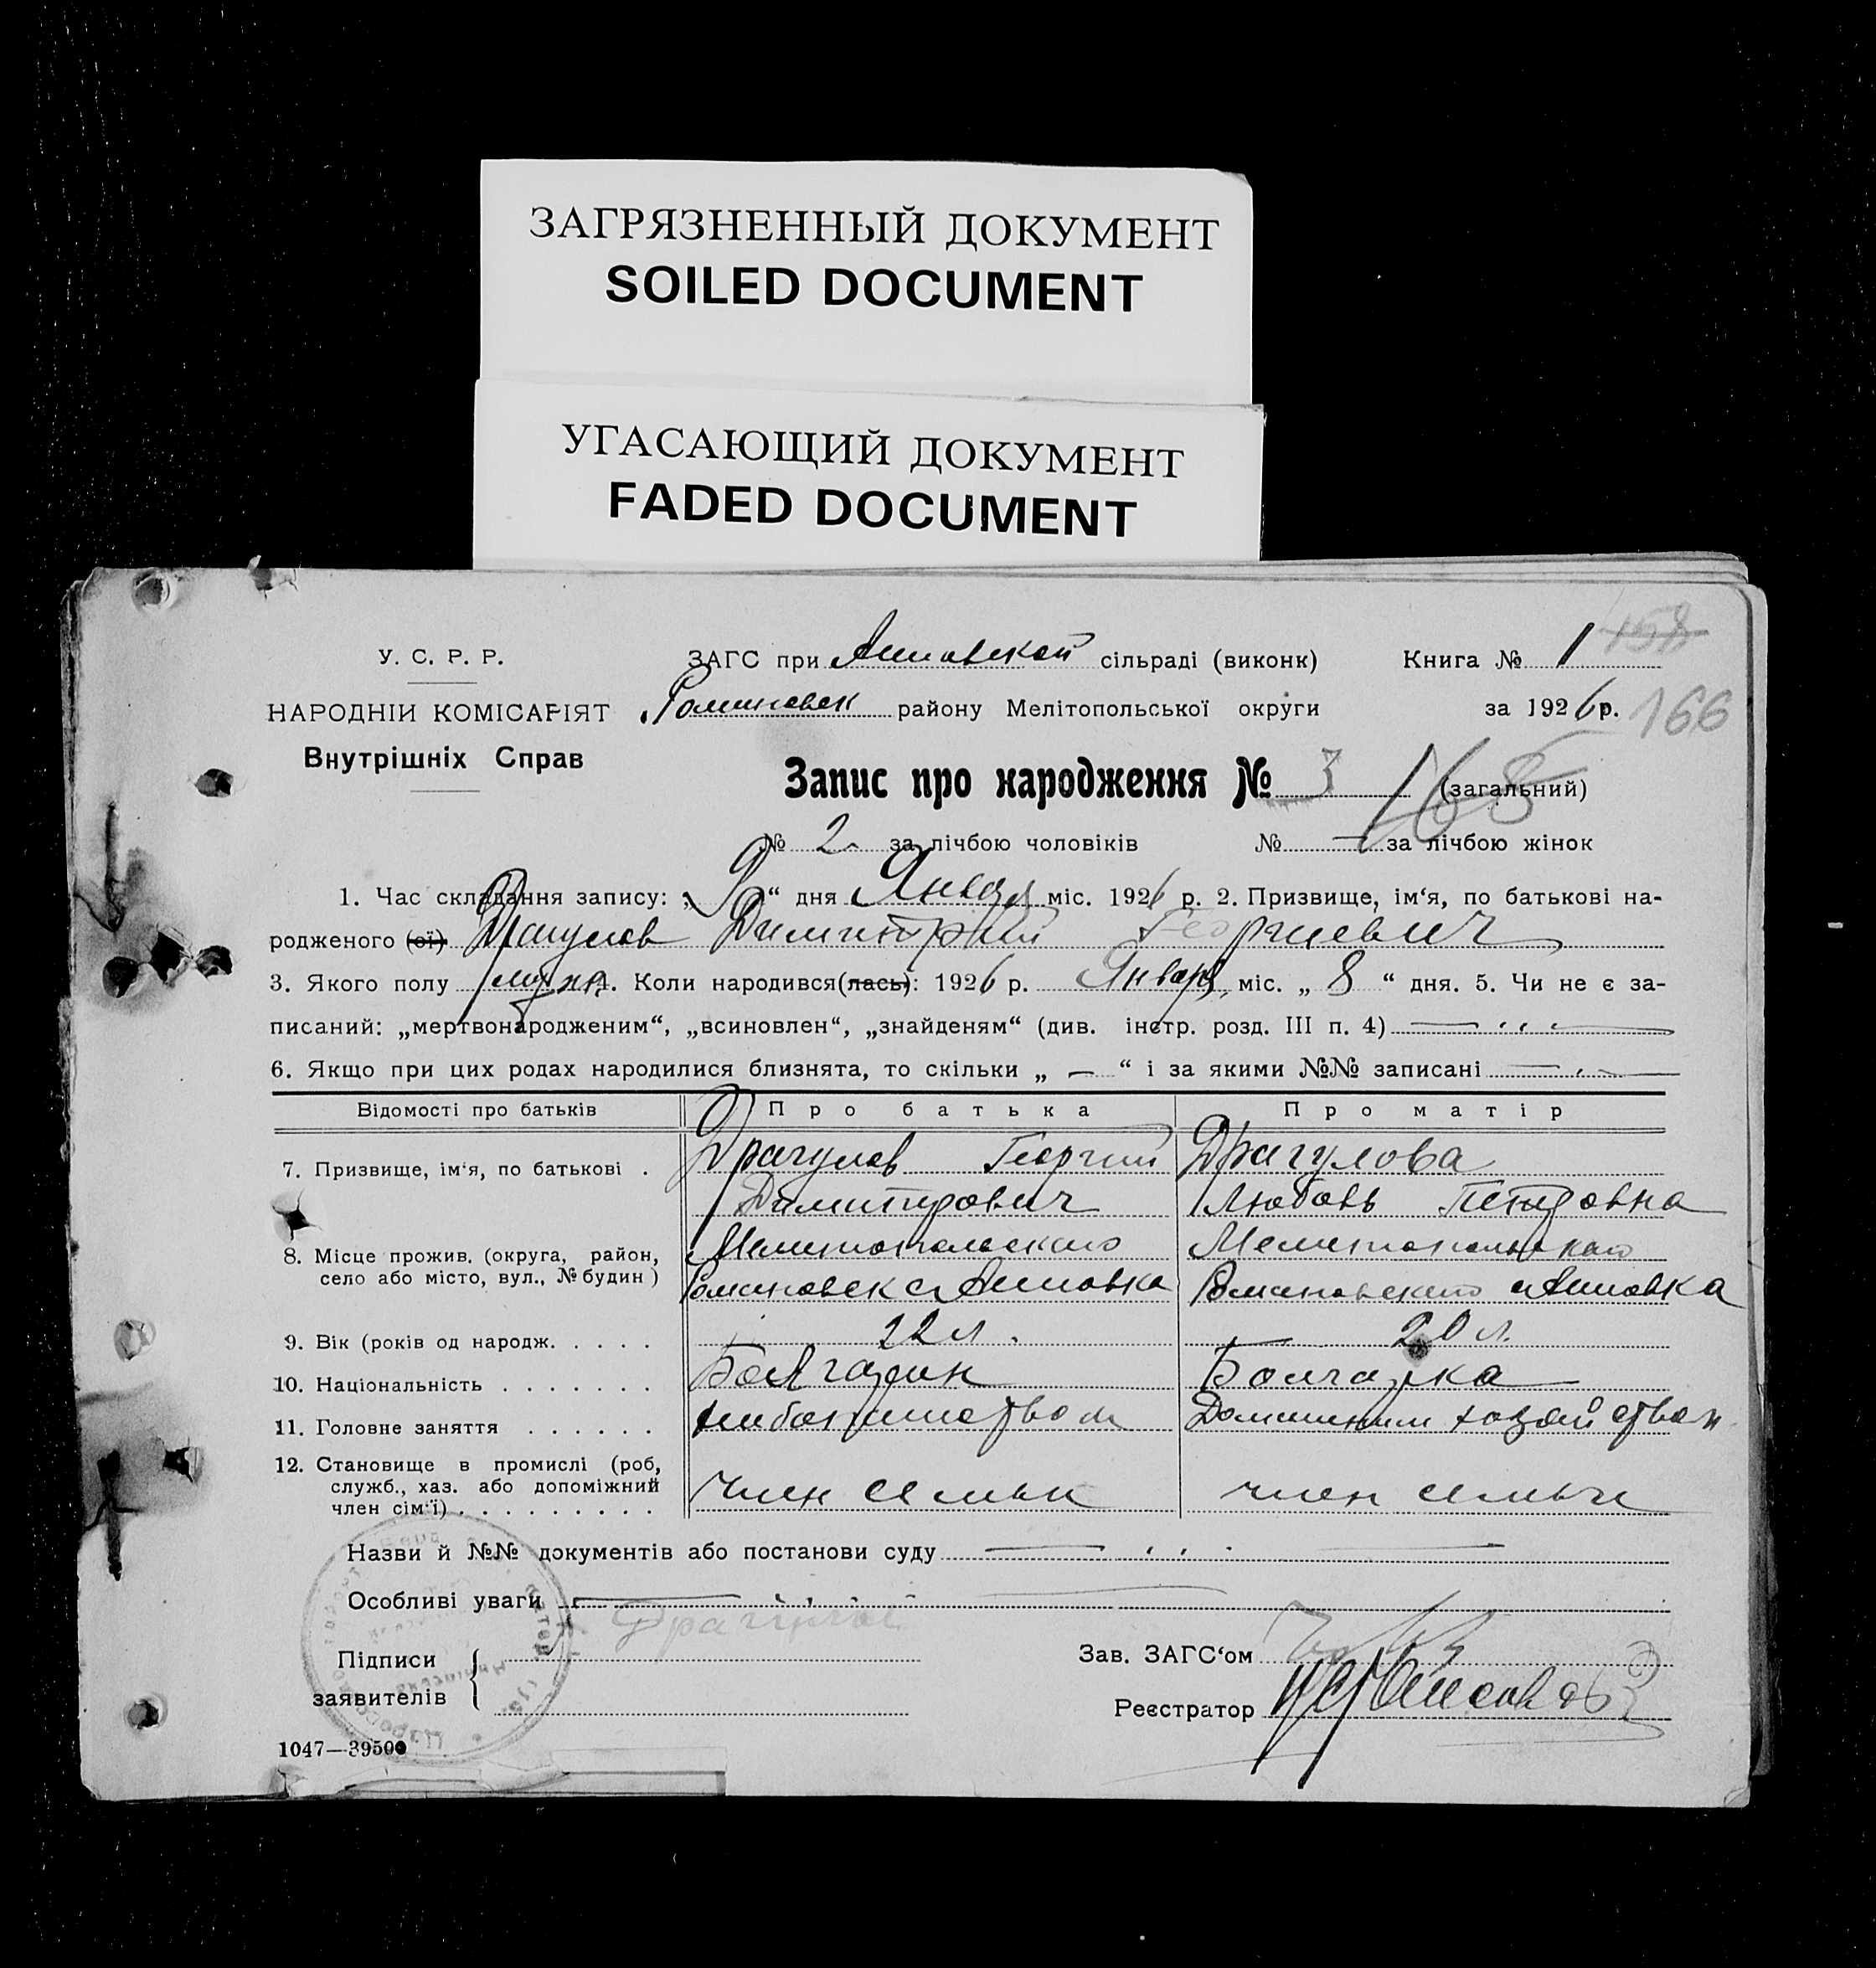 ЗАГРЯЗНЕННЫЙ ДОКУМЕНТ
SOILED DOCUMENT
УГАСАЮЩИЙ ДОКУМЕНТ
FADED DOCUMENT
У. С. Р. Р.
НАРОДНІЙ КОМІСАРІЯТ
Внутрішніх Справ
ЗАГС при сільраді (виконк)
Романовск району Мелітопольської округи
Книга № 1 158
за 1926 р. 166
Запис про народження № 3 (загальний) 165
№ 2 за лічбою чоловіків № — за лічбою жінок
1. Час складання запису: „9“ дня Января міс. 1926 р. 2. Призвище, ім‘я, по батькові на-
родженого (ої) Драгулов Димитрий Георгиевич
3. Якого полу муж. 4. Коли народився(лась): 1926 р. Января міс. „ 8 “ дня. 5. Чи не є за-
писаний: „мертвонародженим“, „всиновлен“, „знайденям“ (див. інстр. розд. III п. 4)
6. Якщо при цих родах народилися близнята, то скільки „ — “ і за якими №№ записані
Відомості про батьків Про батька Про матір
7. Призвище, ім‘я, по батькові . Драгулов Георгий Драгулова
Димитрович Любовь Петровна
8. Місце прожив. (округа, район, село або місто, вул., № будин) Мелитопольского Мелитопольского
Романовск с Романовского с
9. Вік (років од народж. . . . . 22 л. 20 л.
10. Національність . . . . . . . Болгарин Болгарка
11. Головне заняття . . . . . . хлебопашеством Домашним хозяйством
12. Становище в промислі (роб, служб., хаз. або допоміжний член сім‘ї) . . . . . . . . . член семьи член семьи
Назви й №№ документів або постанови суду
Особливі уваги
Підписи
заявителів
Зав. ЗАГС‘ом
Реєстратор
1047—39500